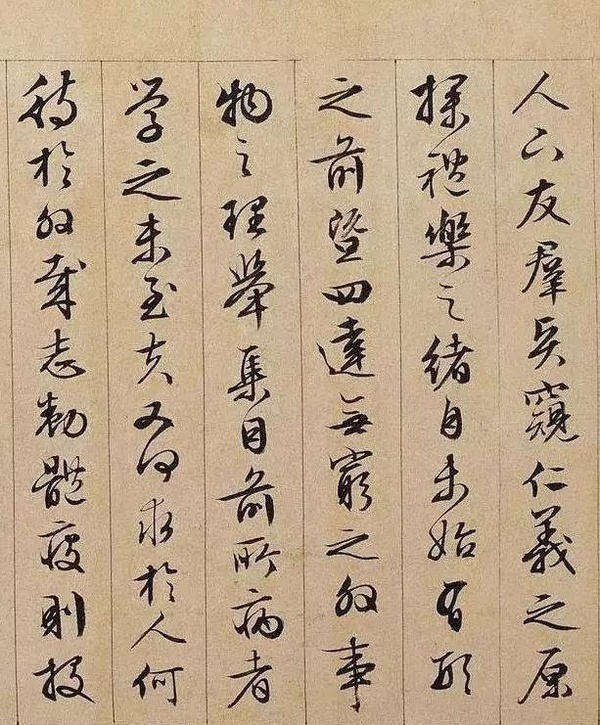 人下友羣賢窺仁義之原
探禮樂之緒自未始有形
之前暨四達無窮之外事
物之理舉集目前所病者
學之未至夫又何求於人何
待於外哉志勌體疲則投